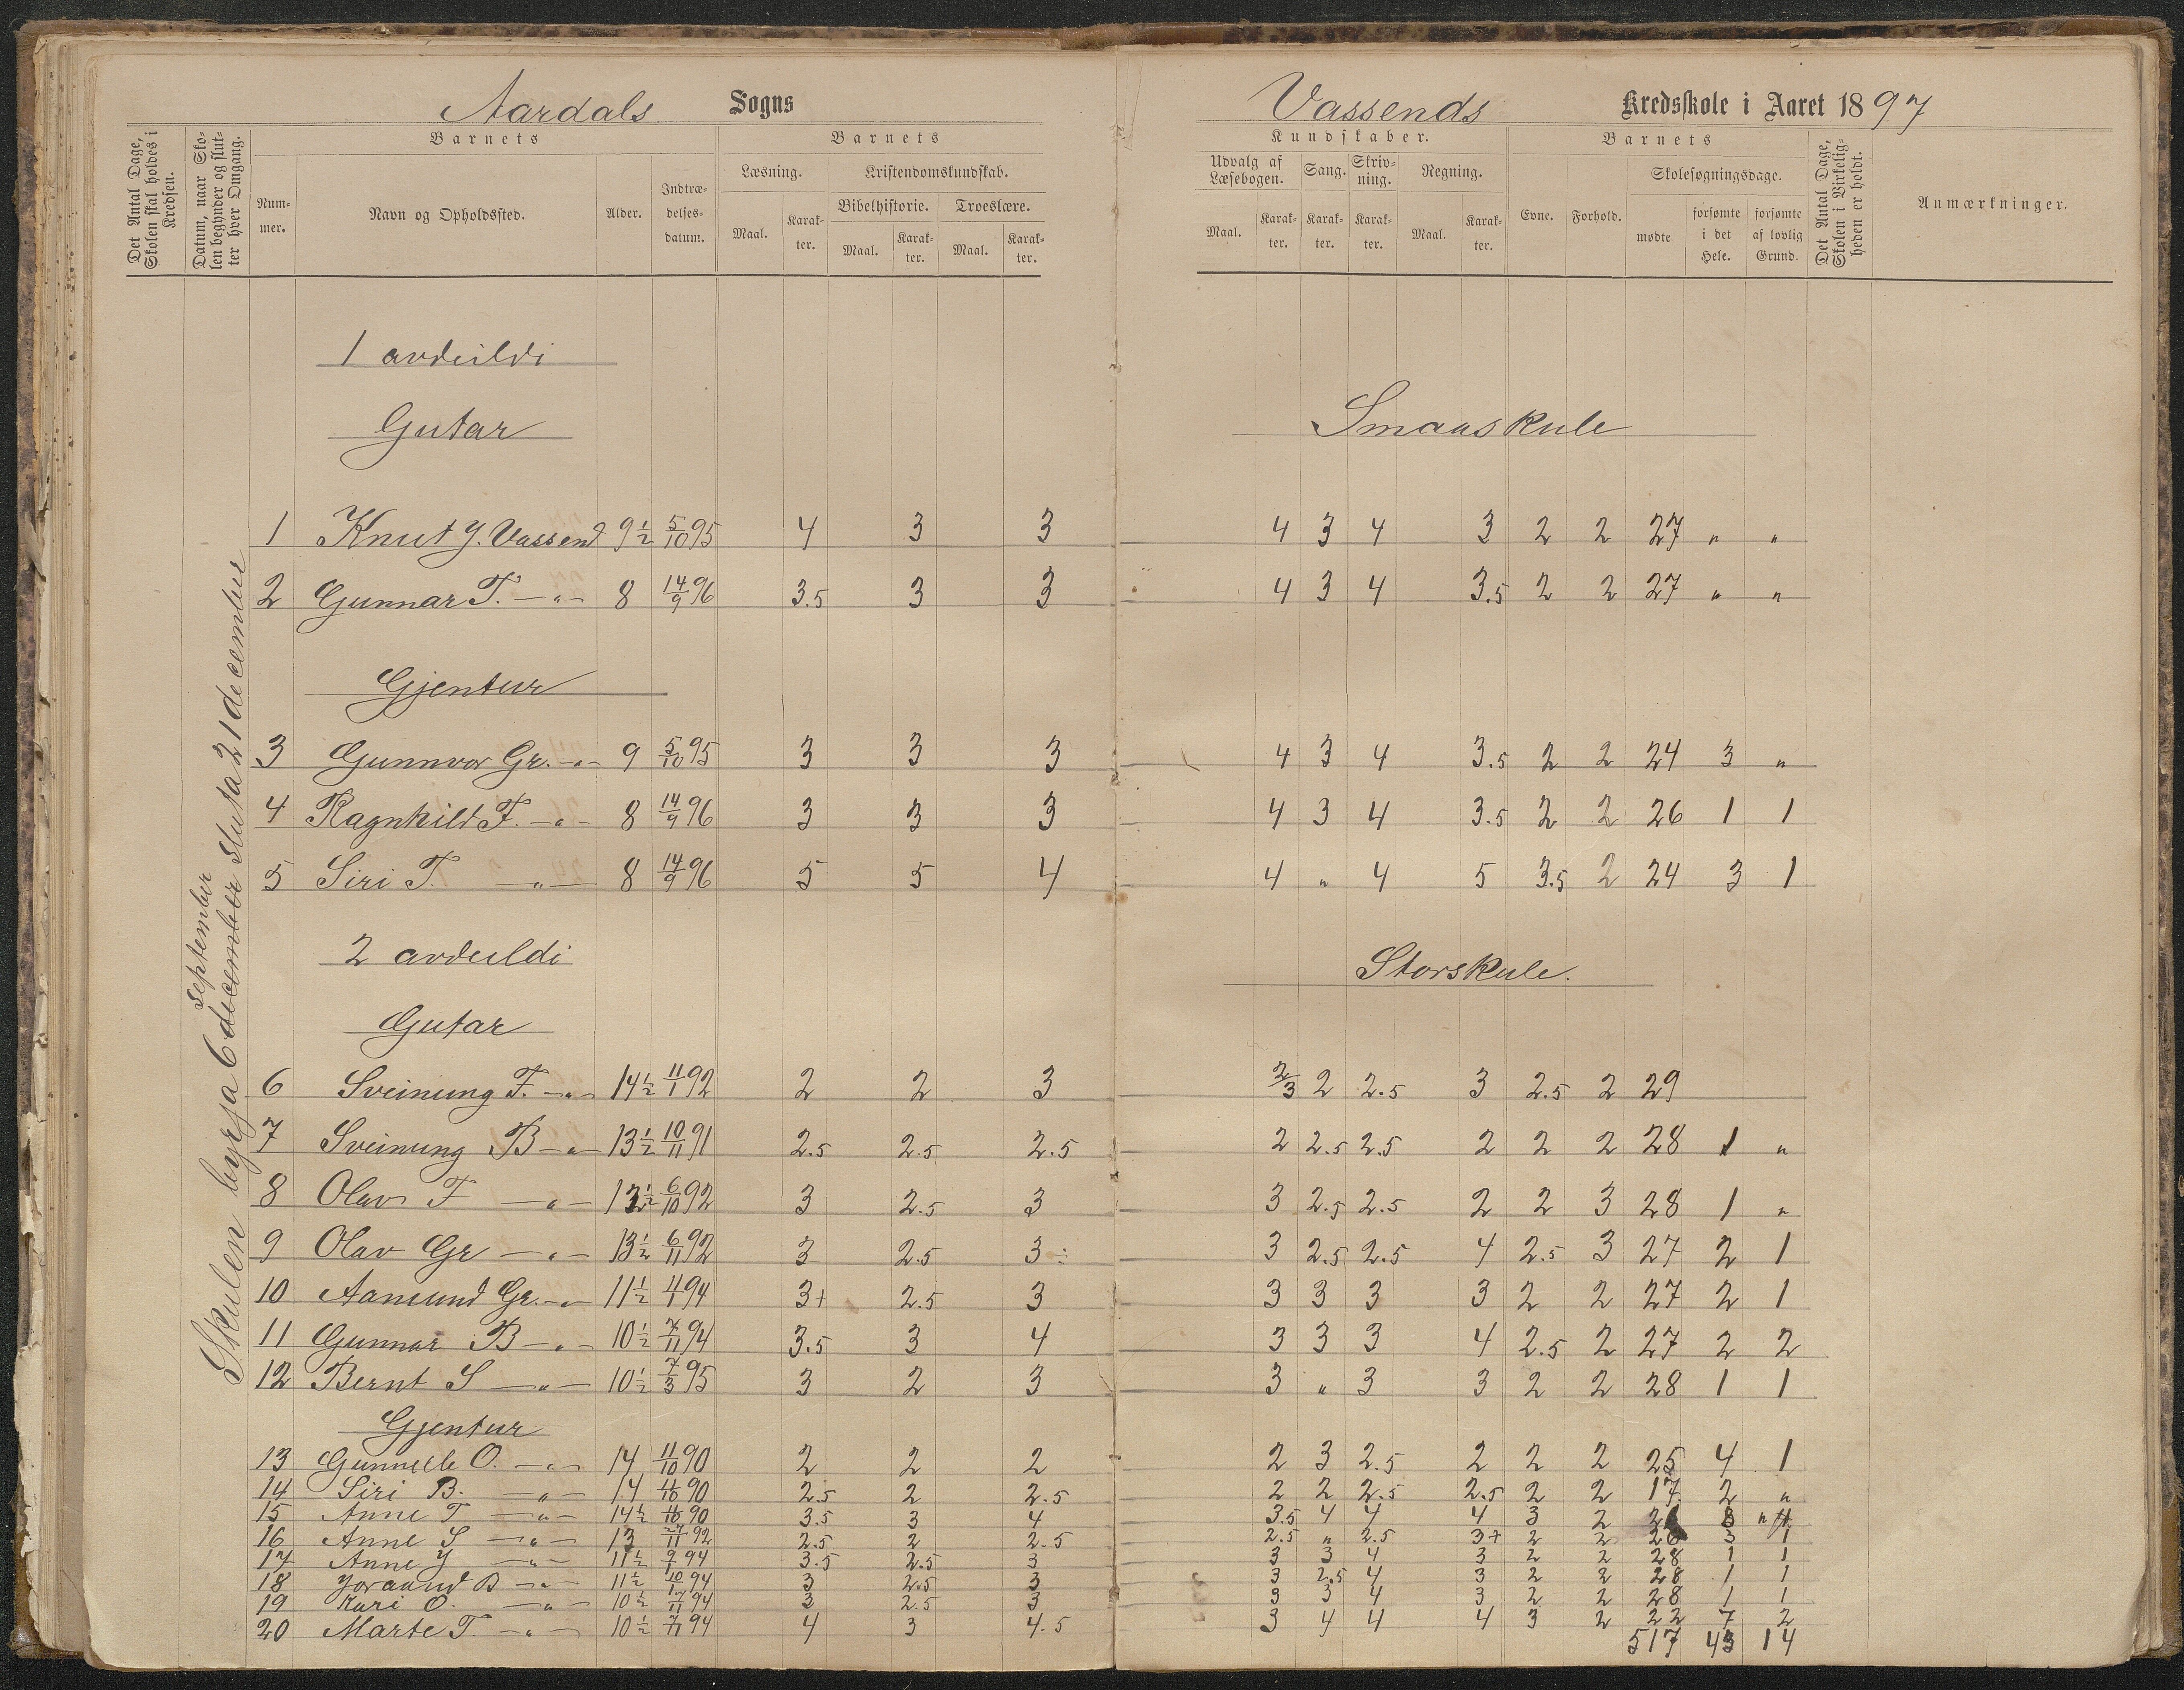 Aardals Sogns
Vassends Kredsskole i Aaret 1897
Det Antal Dage, Skolen skal holdes i Kredsen.
Datum, naar Skolen begynder og slutter hver Omgang.
Barnets
Nummer.
Navn og Opholdssted.
Alder.
Indtrædelsesdatum.
Barnets
Læsning.
Maal.
Karakter.
Kristendomskundskab.
Bibelhistorie.
Maal.
Karakter.
Troeslære.
Maal.
Karakter.
Kundskaber.
Udvalg af Læsebogen.
Maal.
Karakter.
Sang.
Karakter.
Skrivning.
Karakter.
Regning.
Maal.
Karakter.
Barnets
Evne.
Forhold.
Skolesøgningsdage.
mødte
forsømte i det Hele.
forsømte af lovlig Grund.
Det Antal Dage, Skolen i Virkeligheden er holdt.
Anmærkninger.
Skulen byrja 6 december september sluta 21 december
1 avdeildi
Gutar
Smaaskule
1 Knut Y. Vassend 9½ 5/10 95 4 3 3 4 3 4 3 2 2 27 " "
2 Gunnar T. —"— 8 14/9 96 3.5 3 3 4 3 4 3.5 2 2 27 " "
Gjentur
3 Gunnvor Gr. —"— 9 5/10 95 3 3 3 4 3 4 3.5 2 2 24 3 "
4 Ragnhild F. —"— 8 14/9 96 3 3 3 4 3 4 3.5 2 2 26 1 1
5 Siri T. —"— 8 14/9 96 5 5 4 4 " 4 5 3.5 2 24 3 1
2 avdeildi
Storskule.
Gutar
6 Sveinung F. —"— 14½ 11/1 92 2 2 3 2/3 2 2.5 3 2.5 2 29
7 Sveinung B —"— 13½ 10/11 91 2.5 2.5 2.5 2 2.5 2.5 2 2 2 28 1 "
8 Olav F —"— 13½ 6/10 92 3 2.5 3 3 2.5 2.5 2 2 3 28 1 "
9 Olav Gr —"— 13½ 6/11 92 3 2.5 3÷ 3 2.5 2.5 4 2.5 3 27 2 1
10 Aamund Gr. —"— 11½ 94 3+ 2.5 3 3 3 3 3 2 2 27 2 1
11 Gunnar B —"— 10½ 7/11 94 3.5 3 4 3 3 3 4 2.5 2 27 2 2
12 Bernt S —"— 10½ 7/3 95 3 2 3 3 " 3 3 2 2 28 1 1
Gjentur
13 Gunnell O. —"— 14 11/10 90 2 2 2 2 3 2.5 2 2 2 25 4 1
14 Siri B. —"— 14 11/10 90 2.5 2 2.5 2 2 2.5 2.5 2 2 17 2 "
15 Anne T —"— 14½ 90 3.5 3 4 3.5 4 4 4 3 2
16 Anne S —"— 13 92 2.5 2 2.5 2.5 " 2.5 3+ 2 2 26 3 1
17 Anne Y —"— 11½ 94 3.5 2.5 3 3 3 4 3 2 2 28 1 1
18 Joraand B —"— 11½ 94 3 2.5 3 3 2.5 4 3 2 2 28 1 1
19 Kari O. —"— 10½ 94 3 2.5 3 3 3 4 3 2 2 28 1 1
20 Marte T. —"— 10½ 7/11 94 4 3 4.5 3 4 4 4 3 2 22 7 2
517 43 14